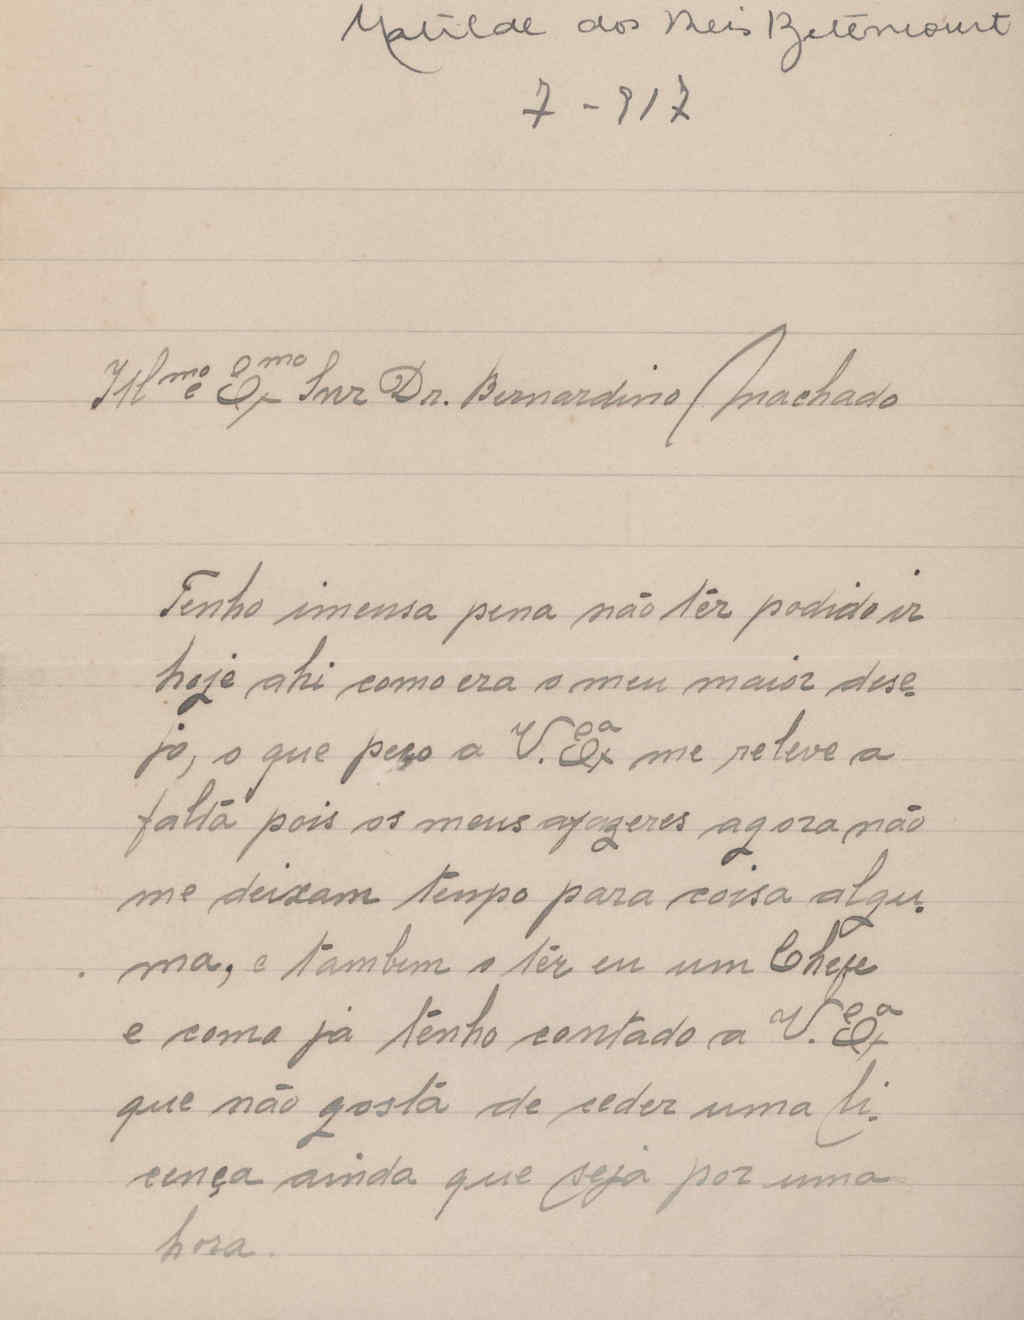 Matilde dos Reis Betencourt
7-917
Illmo e Exmo Snr Dr. Bernardino Machado
Tenho imensa pena não têr podido ir
hoje ahi como era o meu maior dese-
jo, o que peço a V. Exa me releve a
falta pois os meus afazeres agora não
me deixam tempo para coisa algu-
ma, e tambem o têr eu um Chefe
e como já tenho contado a V. Exa
que não gosta de ceder uma li-
cença ainda que seja por uma
hora.